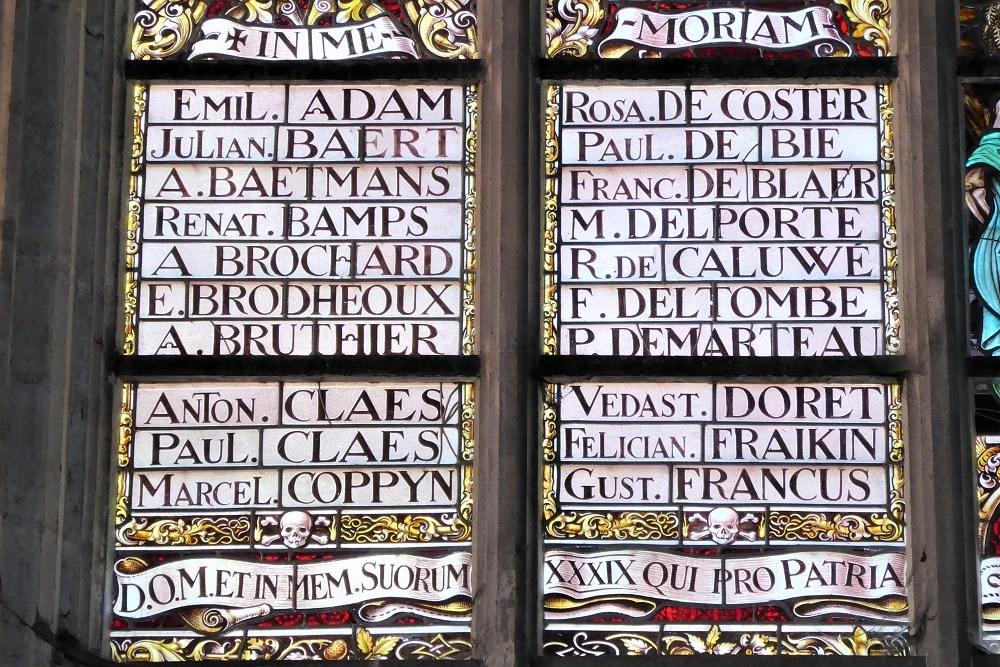 ✠ IN ME-
EMIL. ADAM
JULIAN. BAERT
A. BAETMANS
RENAT. BAMPS
A BROCHARD
E. BRODHEOUX
A. BRUTHIER
ANTON. CLAES
PAUL. CLAES
MARCEL. COPPYN
D.O.M. ET IN MEM. SUORUM
-MORIAM
ROSA. DE COSTER
PAUL. DE BIE
FRANC. DE BLAER
M. DELPORTE
R. DE CALUWÉ
F. DELTOMBE
P. DEMARTEAU
VEDAST. DORET
FELICIAN. FRAIKIN
GUST. FRANCUS
XXXIX QUI PRO PATRIA